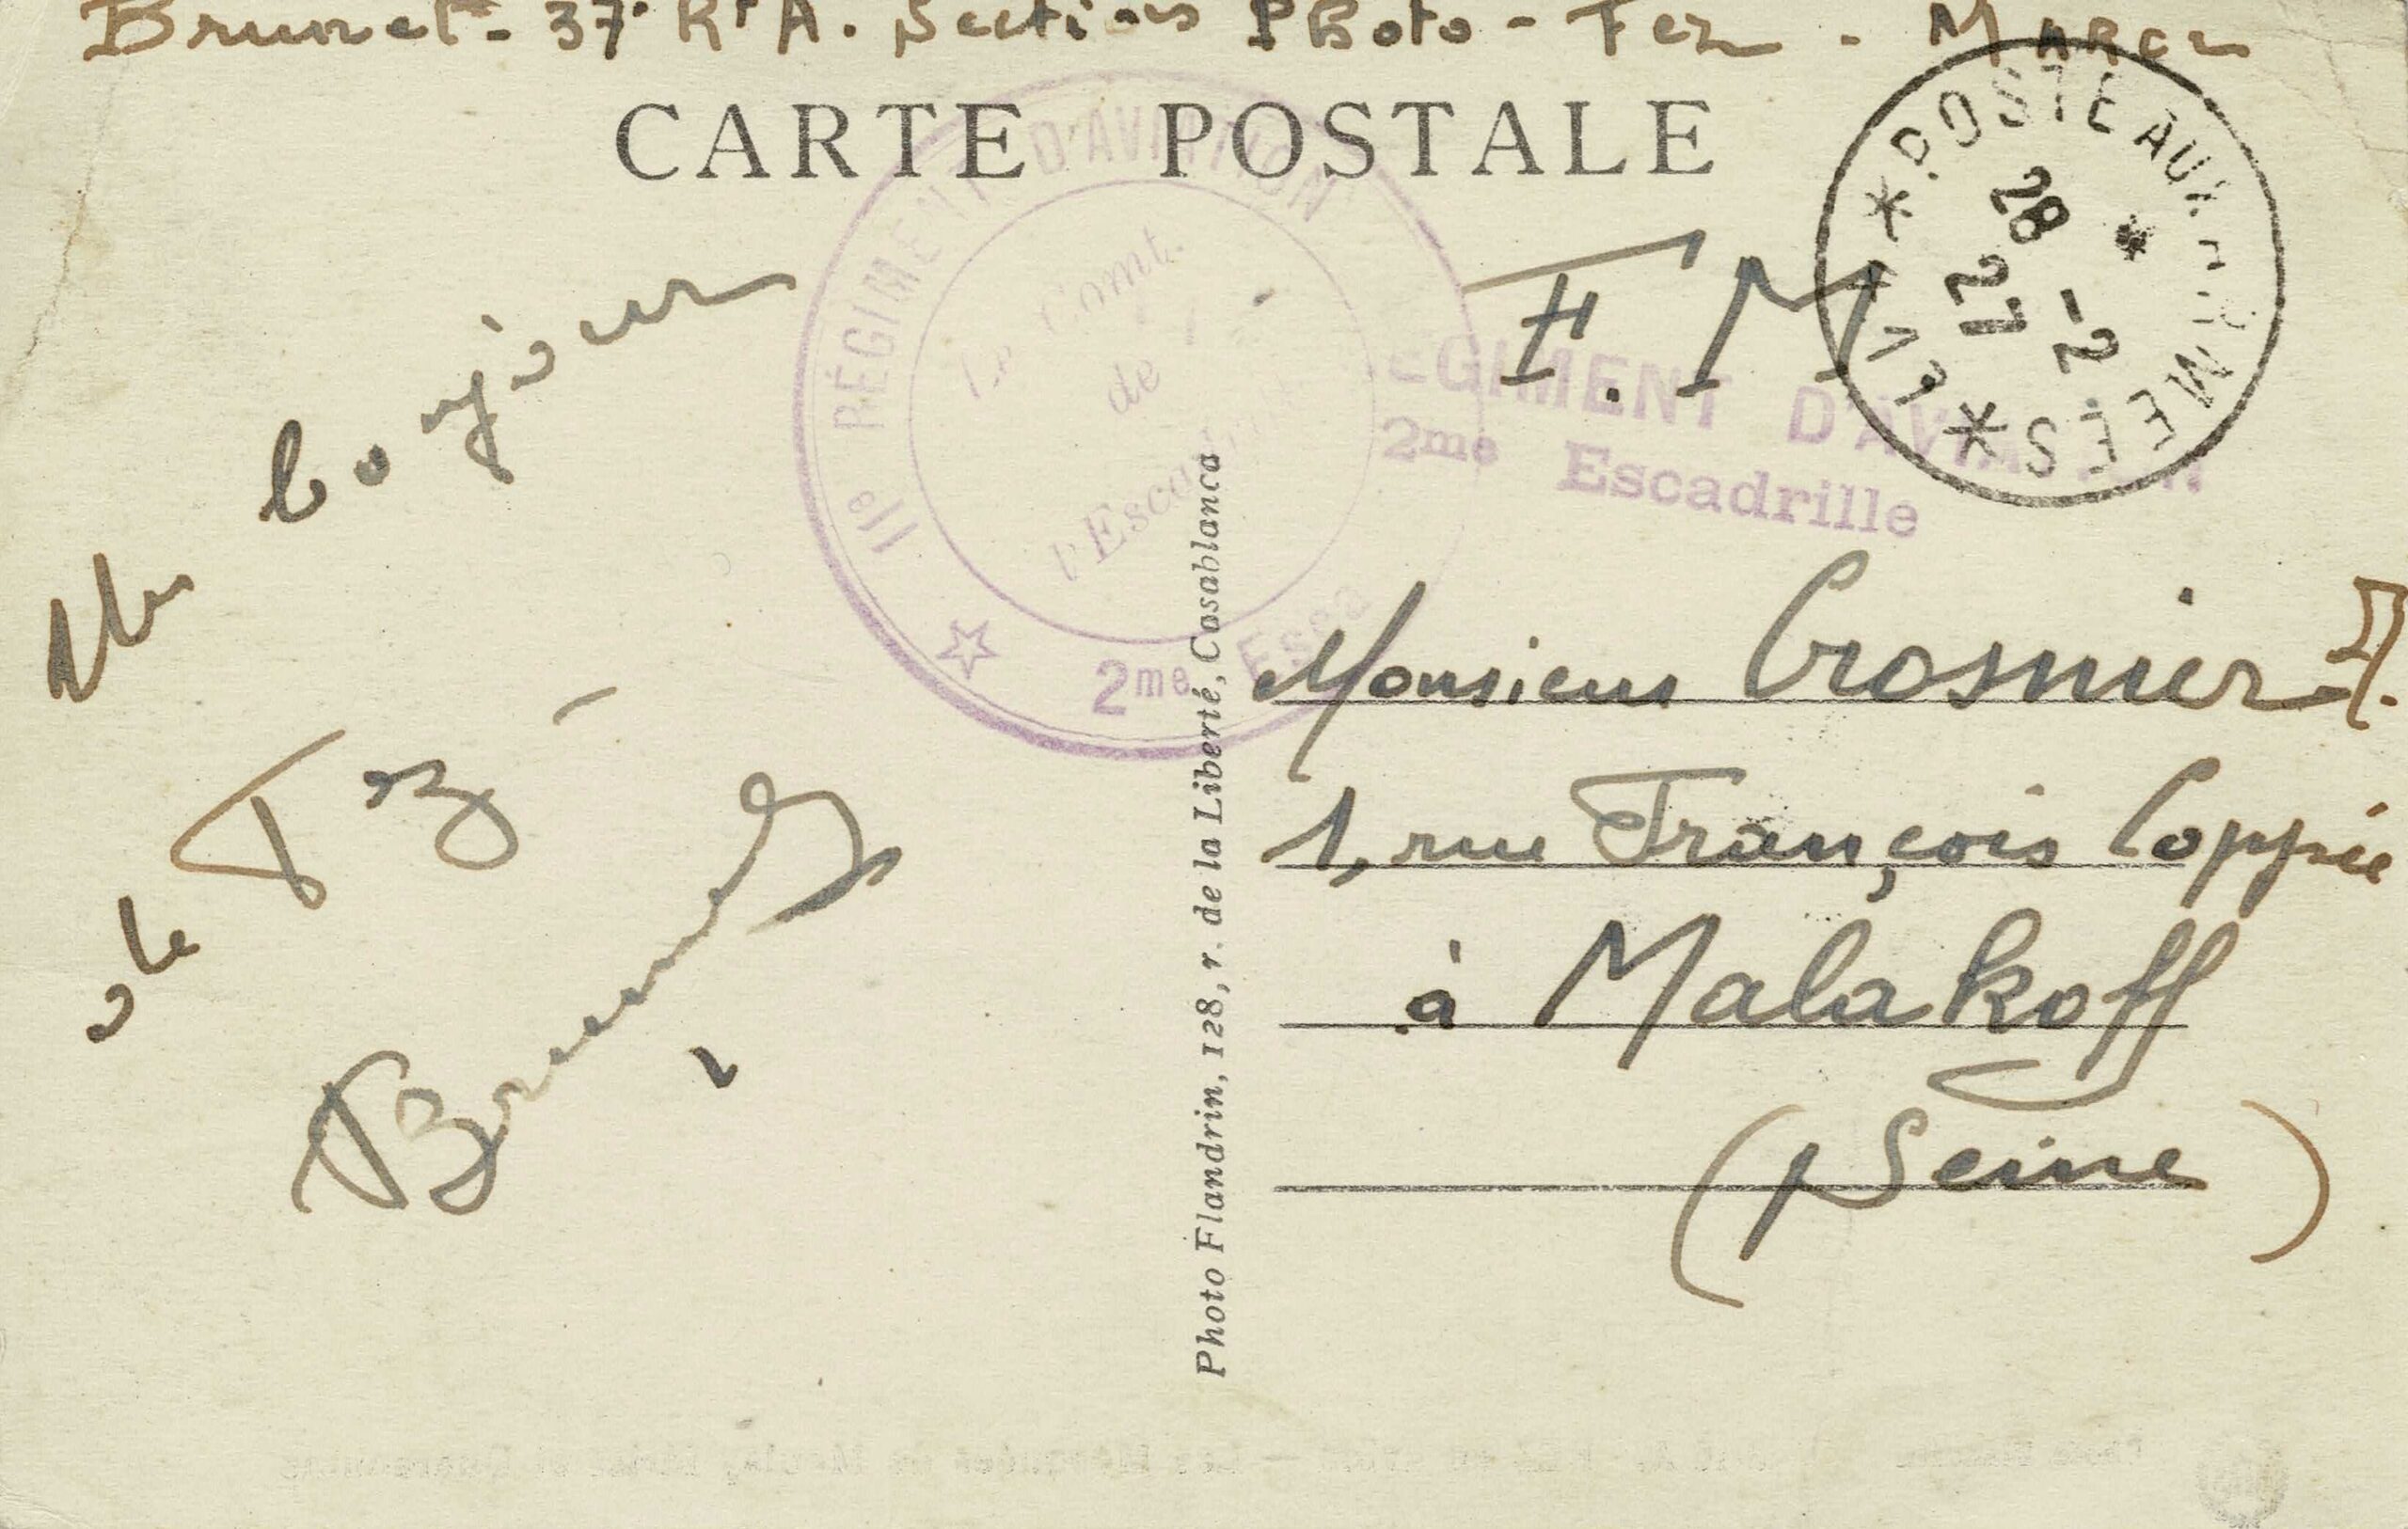 Brunet - 37e Rt A. Section Photo - Fez - Maroc
CARTE POSTALE
POSTE AUX ARMEES
28 - 2
27
F.M
11e RÉGIMENT D'AVIATION
Le Comt.
de
l'Esca
2me Esca
REGIMENT D'AVIATION
2me Escadrille
Un bonjour
de Fez -
Brunet
Photo Flandrin, 128, r. de la Liberté, Casablanca
Monsieur Crosnier J.
1, rue François Coppée
à Malakoff
(Seine)